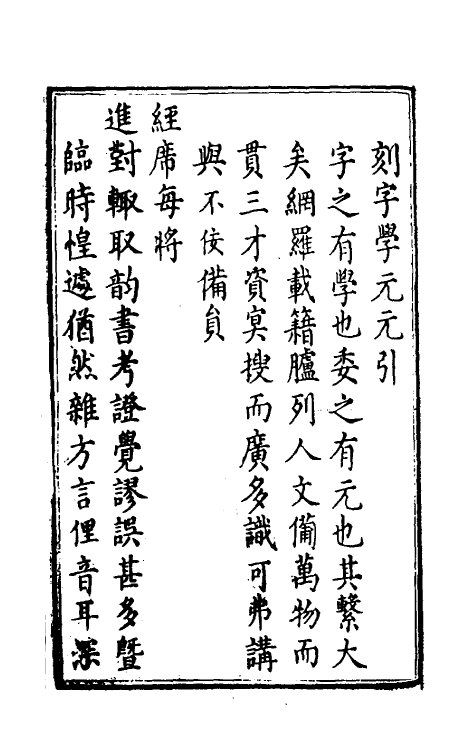 刻字學元元引
字之有學也委之有元也其繫大
矣網羅載籍臚列人文備萬物而
貫三才資冥搜而廣多識可弗講
與不佞備員
經席每將
進對輒取韵書考證覺謬誤甚多暨
臨時惶遽猶然雜方言俚音耳深